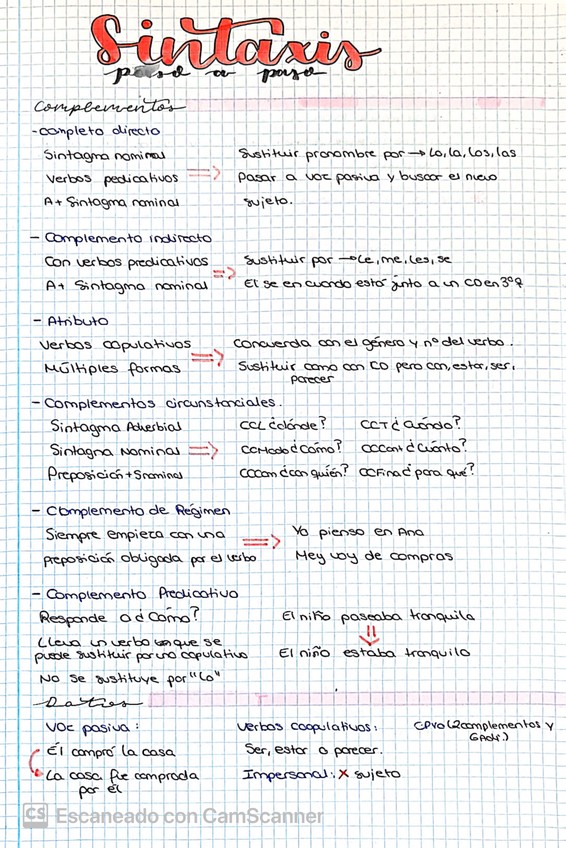 Sintaxis
paso a paso
Complementos
-completo directo
Sintagma nominal
Verbos pedicativos
A + Sintagma nominal
Sustituir pronombre por → Lo, la, los, las
Pasar a voz pasiva y buscar el nuevo
sujeto.
- Complemento indirecto
Con verbos predicativos
A + Sintagma nominal
Sustituir por → Le, me, les, se
El se en cuando está junto a un CD en 3ª
- Atributo
Verbos copulativos
Múltiples formas
Concuerda con el género y nº del verbo.
Sustituir como con CD pero con, estar, ser,
parecer
- Complementos circunstanciales.
Sintagma Adverbial
Sintagma Nominal
Preposición + S nominal
CCL ¿dónde?
CCT ¿Cuándo?
CCModo ¿Cómo?
CCCant ¿Cuánto?
CCCom ¿con quién?
CCFina ¿para qué?
- Complemento de Régimen
Siempre empieza con una
preposición obligada por el verbo
Yo pienso en Ana
Mey voy de compras
- Complemento Predicativo
Responde a ¿Cómo?
Lleva un verbo que se
puede sustituir por uno copulativo
No se sustituye por "Lo"
El niño paseaba tranquilo
El niño estaba tranquilo
Datos
Voz pasiva:
Él compró la casa
La casa fue comprada
por él
Verbos copulativos:
Ser, estar o parecer.
Impersonal: X sujeto
CPVO (2 complementos y
CS Escaneado con CamScanner